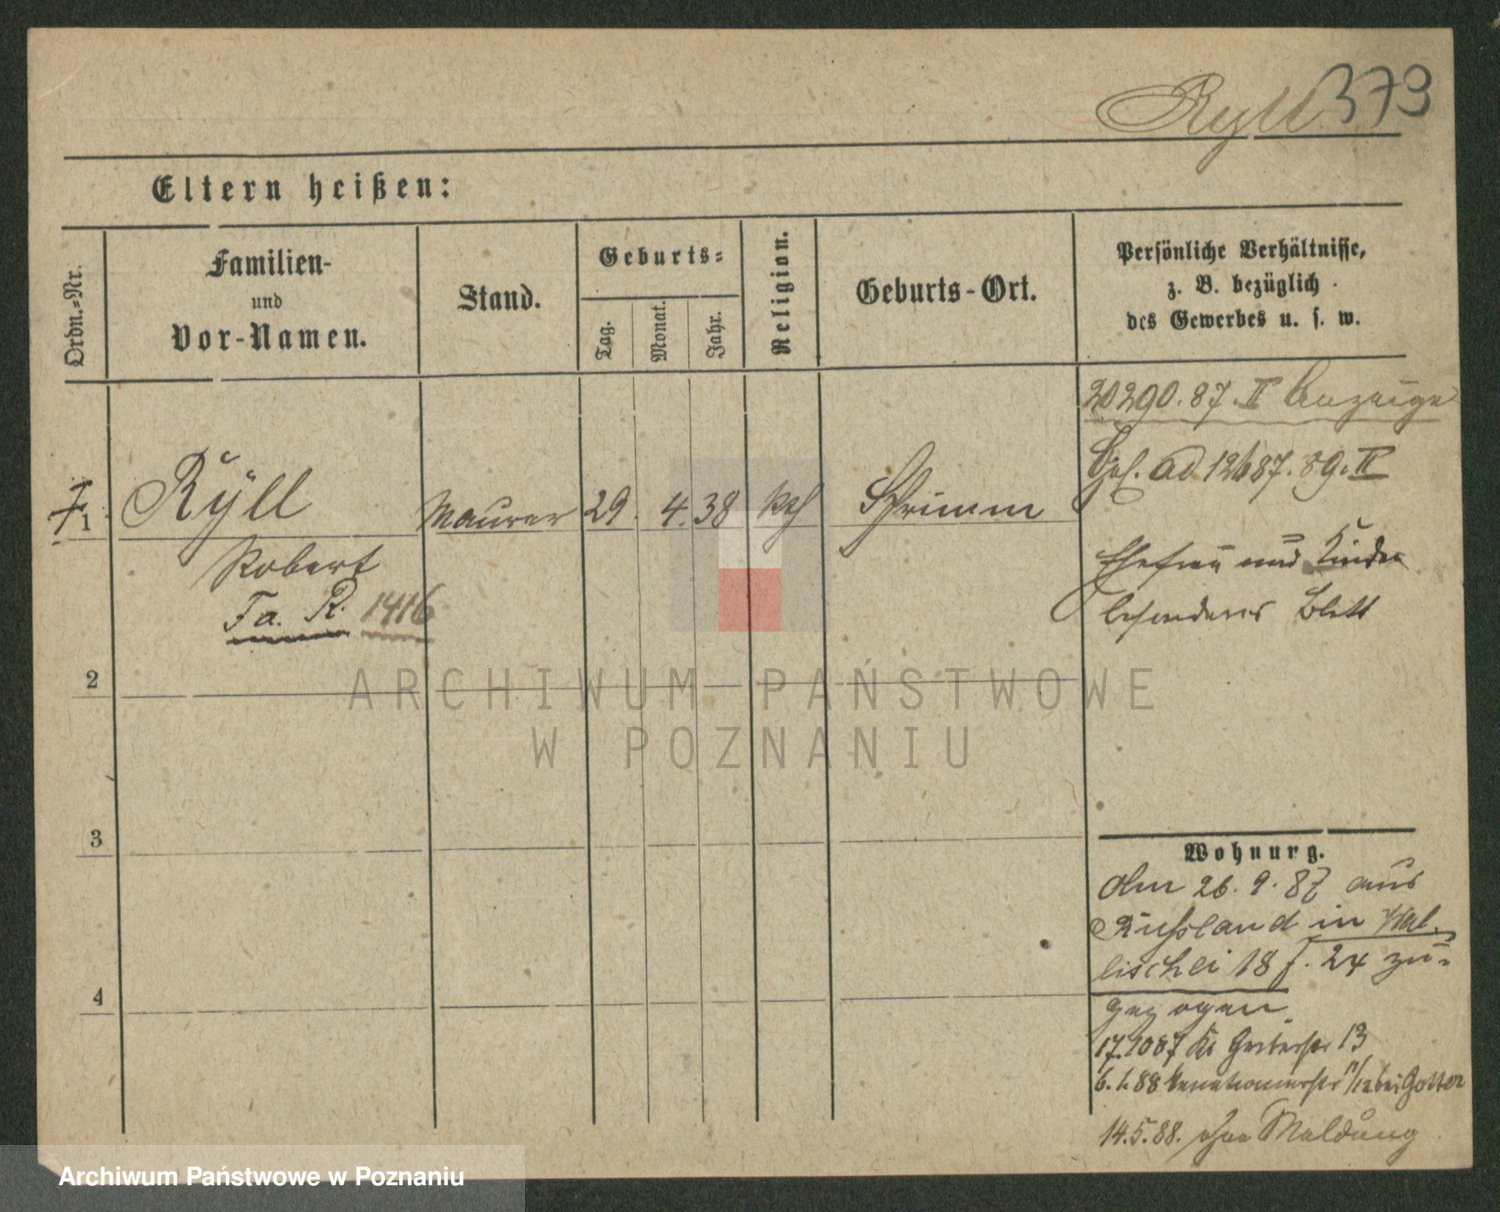 Ryll 379
Eltern heißen:
Ordn.-Nr.
Familien-
und
Vor-Namen.
Stand.
Geburts-
Tag.
Monat.
Jahr.
Religion.
Geburts-Ort.
Persönliche Verhältnisse,
z. B. bezüglich
des Gewerbes u. s. w.
20290. 87. II Anzeige
ad 12687. 89. II
1 Ryll Maurer 29. 4. 38 kth Schrimm
Robert
Fa. R. 1416
Ehefrau und Kinder
besonderes Blatt
2
3
4
Wohnung.
Am 26. 9. 87 aus
Russland in Wal-
lischei 18 f. 24 zu-
gezogen
17.10 87 Kl Gerberstr 13
6. 1. 88 11/12 bei
14. 5. 88. ohne Meldung
ARCHIWUM PAŃSTWOWE
W POZNANIU
Archiwum Państwowe w Poznaniu